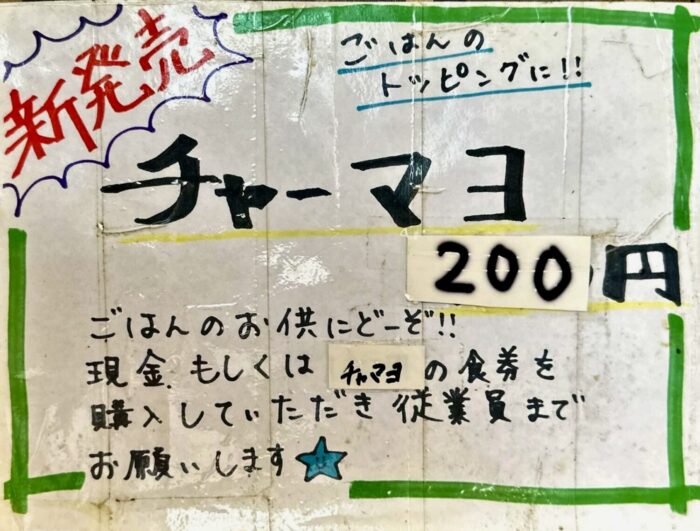 新発売
ごはんの
トッピングに!!
チャーマヨ
200円
ごはんのお供にどーぞ!!
現金もしくは チャマヨ の食券を
購入していただき従業員まで
お願いします